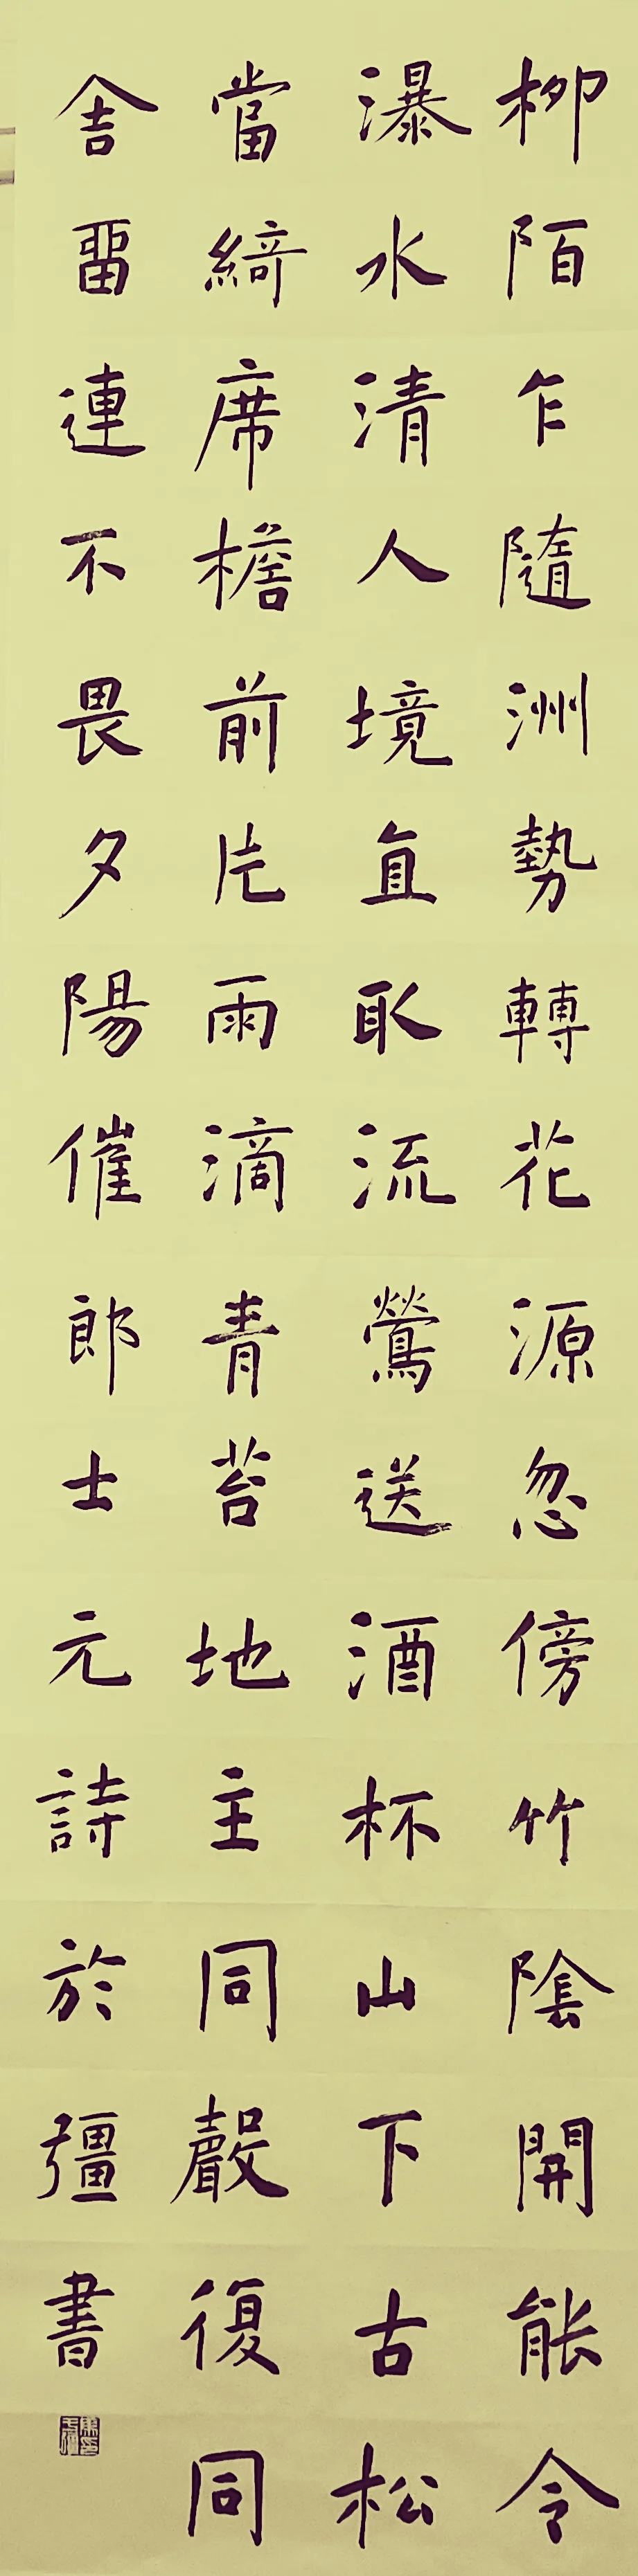 柳陌乍隨洲勢轉花源忽傍竹陰開能令
瀑水清人境直取流鶯送酒杯山下古松
當綺席檐前片雨滴青苔地主同聲復同
舍畱連不畏夕陽催郎士元詩於彊書